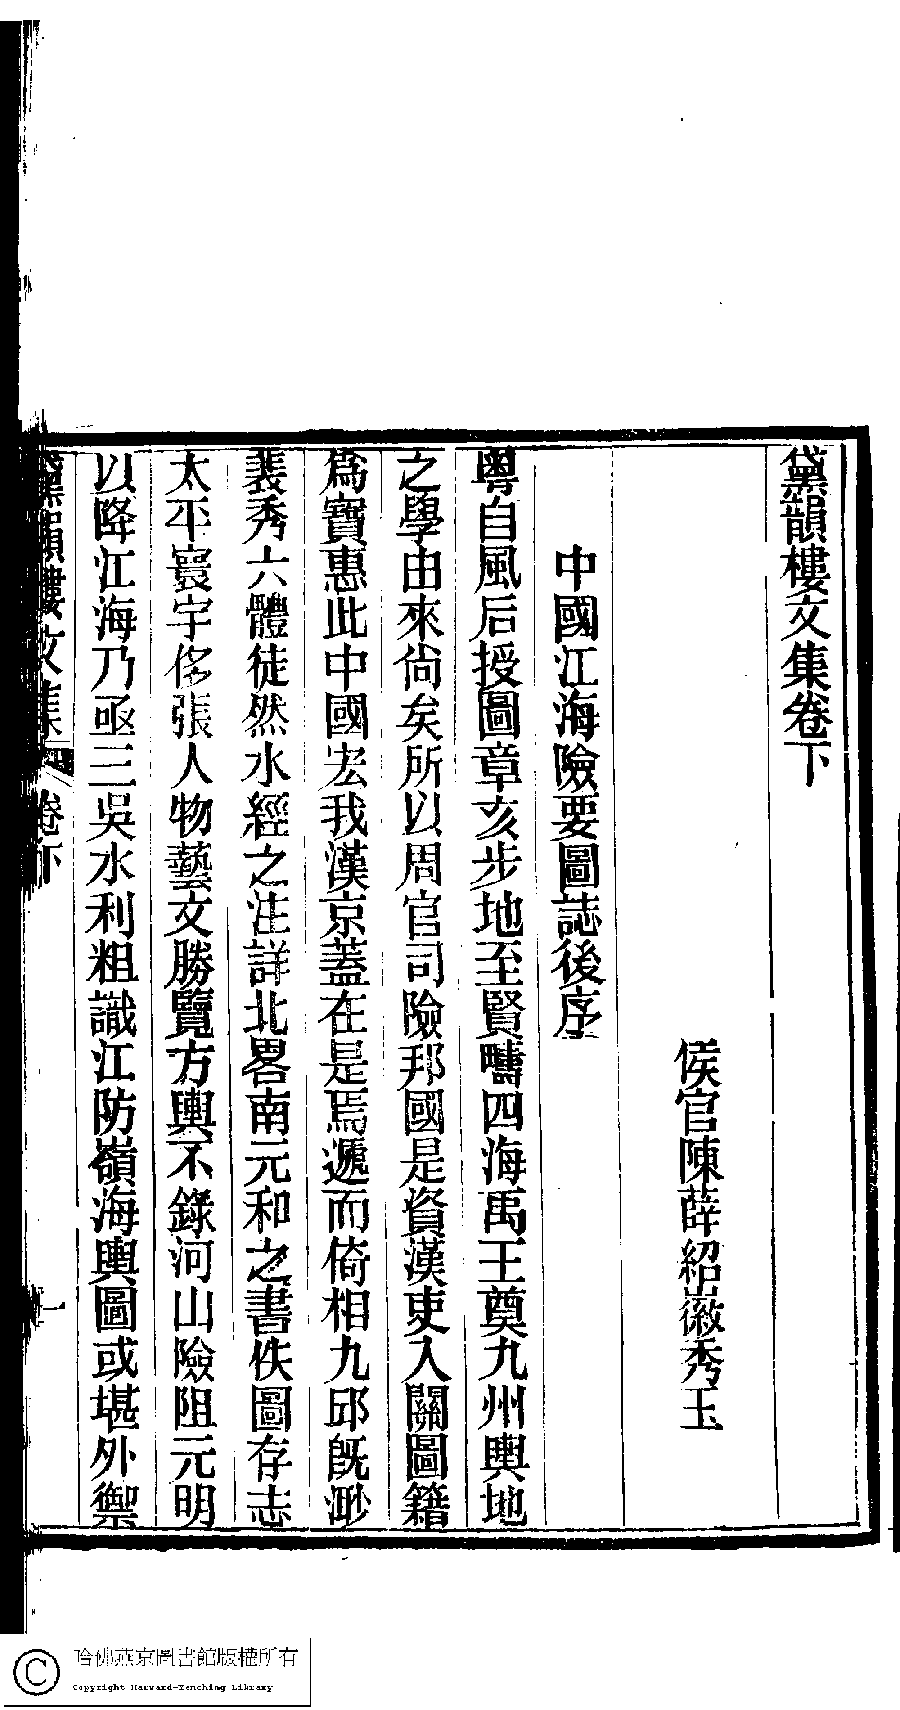 黛韻樓文集卷下
侯官陳薛紹徽秀玉
中國江海險要圖誌後序
粵自風后授圖章亥步地至賢疇四海禹王奠九州輿地
之學由來尙矣所以周官司險邦國是資漢吏入關圖籍
爲寶惠此中國宏我漢京蓋在是焉遞而倚相九邱旣渺
裴秀六體徒然水經之注詳北畧南元和之書佚圖存志
太平寰宇侈張人物藝文勝覽方輿不錄河山險阻元明
以降江海乃亟三吳水利粗識江防嶺海輿圖或堪外禦
黛韻樓文集 卷下
一
哈佛燕京圖書館版權所有
Copyright Harvard-Yenching Library